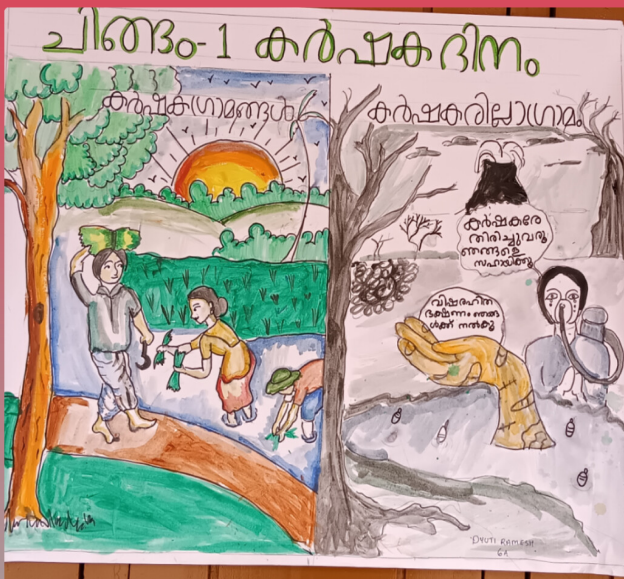 ചിങ്ങം-1 കർഷകദിനം
കർഷകഗ്രാമങ്ങൾ
കർഷകരില്ലാഗ്രാമം
കർഷകരേ
തിരിച്ചുവരൂ
ഞങ്ങളെ
സഹായിക്കൂ
വിഷരഹിത
ഭക്ഷണം ഞങ്ങ
ൾക്ക് നൽകൂ
DYUTI RAMESH
6A